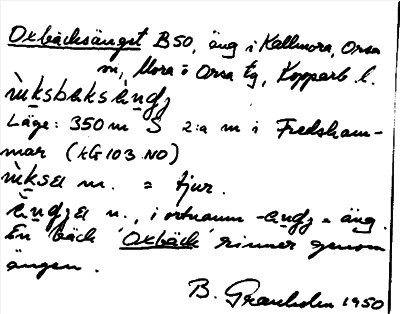 Oxbäcksänget B50, äng i Kallmora, Orsa
sn, Mora o Orsa tg, Kopparb l.
Läge: 350 m S 2:a m i Fredsham-
mar (KG 103 NO)
m. = tjur.
n., i ortnamn = äng.
En bäck Oxbäck rinner genom
ängen.
B. Granholm 1950